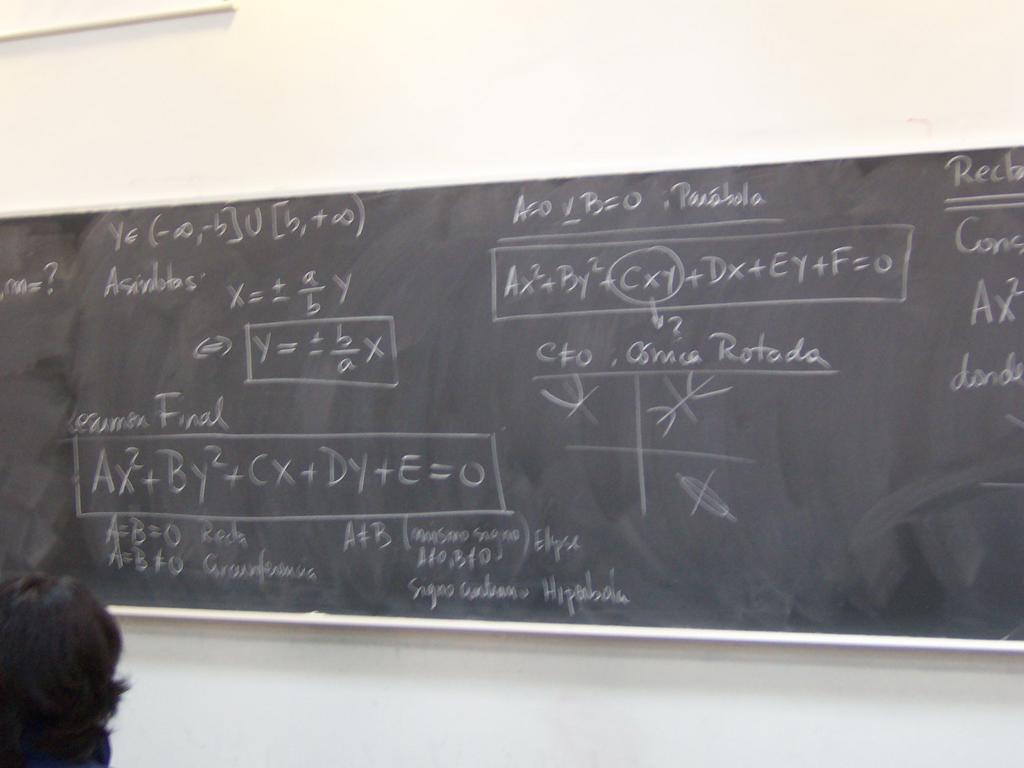 m=?
Y∈ (-∞,-b] U [b,+∞)
Asíntotas:
X = ± a/b Y
⇔ Y = ± b/a X
Resumen Final
Ax²+By²+Cx+Dy+E=0
A=B=0 Recta
A=B≠0 Circunferencia
A≠B (mismo signo A≠0, B≠0) Elipse
signo contrario Hipérbola
A=0 v B=0 : Parábola
Ax²+By²+Cxy+Dx+Ey+F=0
?
C≠0 : Cónica Rotada
Recta
Cons
Ax²
donde